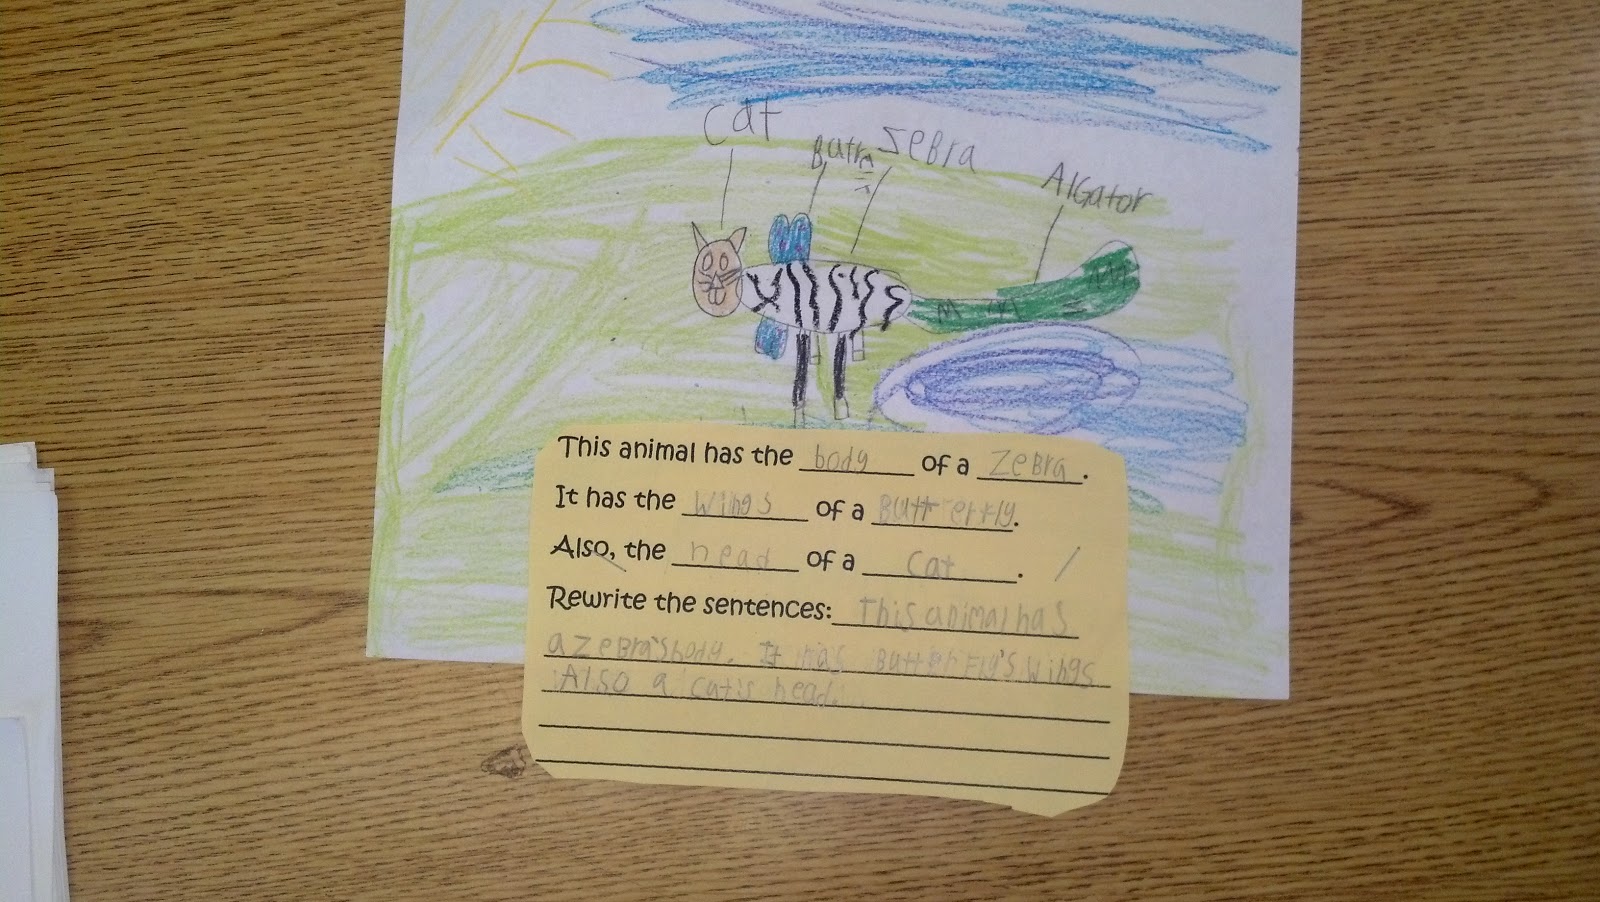 Cat
ZeBra
AlGator
This animal has the body of a ZeBra.
It has the Wings of a ButterFly.
Also, the head of a Cat.
Rewrite the sentences: This animal has
a ZeBra's body. It has ButterFly's Wings
Also a cat's head.